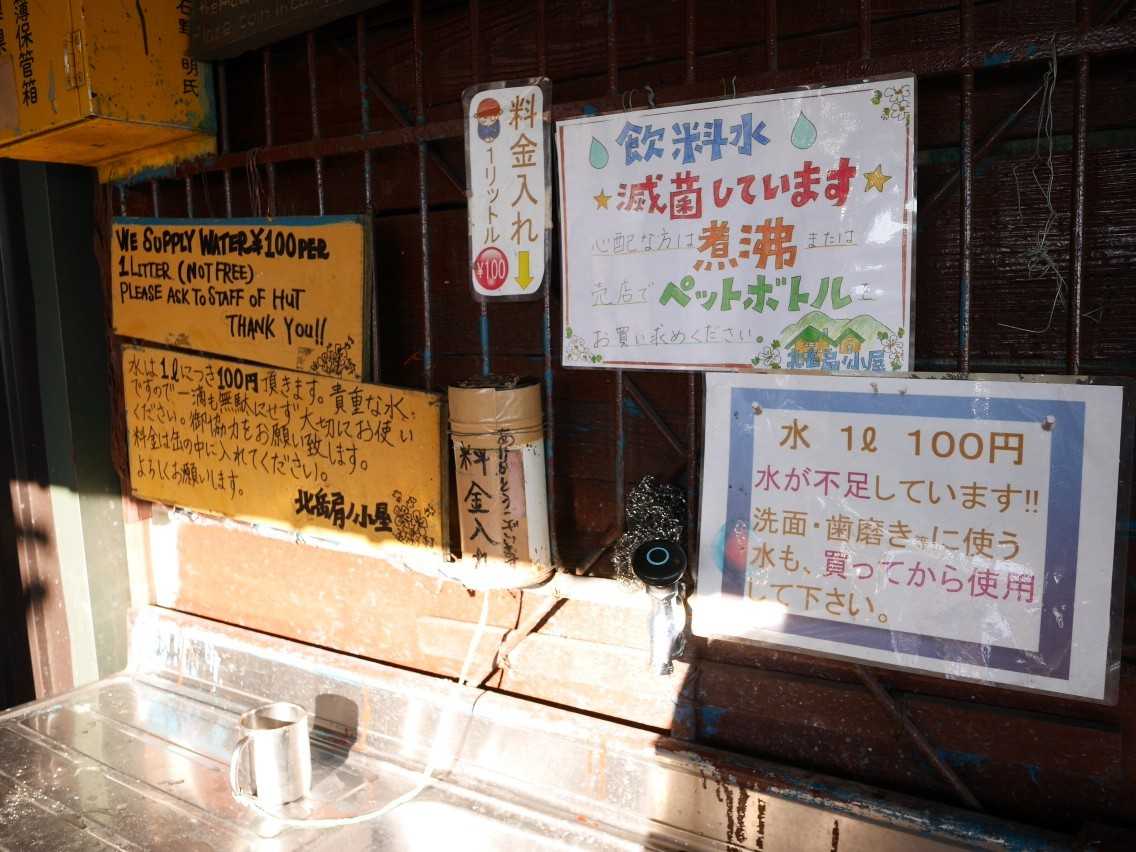 薄保管箱
石野
明氏
県
WE SUPPLY WATER ¥100 PER
1 LITTER (NOT FREE)
PLEASE ASK TO STAFF OF HUT
THANK YOU!!
水は1ℓにつき100円頂きます。貴重な水
ですので一滴も無駄にせず大切にお使い
ください。御協力をお願い致します。
料金は缶の中に入れてください。
よろしくお願いします。
北岳肩ノ小屋
料金入れ
1リットル
¥100
ありがとうございます
料金入れ
飲料水
滅菌しています
心配な方は煮沸または
売店でペットボトルを
お買い求めください。
北岳肩ノ小屋
水 1ℓ 100円
水が不足しています!!
洗面・歯磨き等に使う
水も、買ってから使用
して下さい。